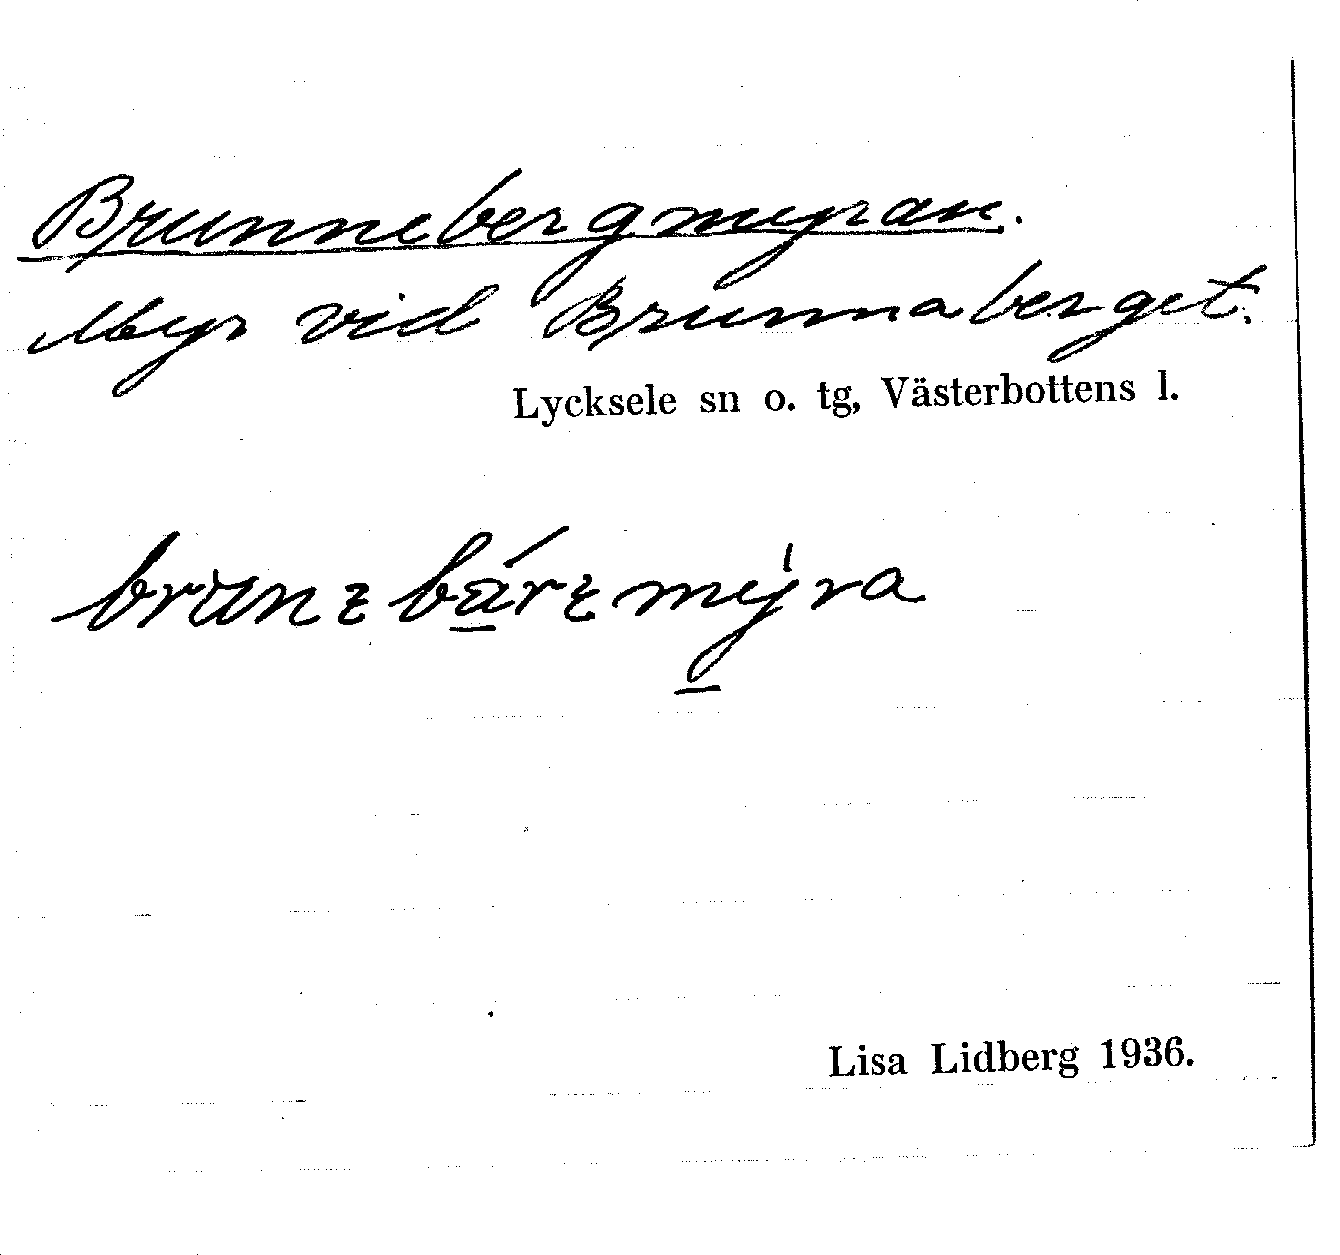 Brunnebergmyran.
Myr vid Brunnaberget.
Lycksele sn o. tg, Västerbottens l.
Lisa Lidberg 1936.